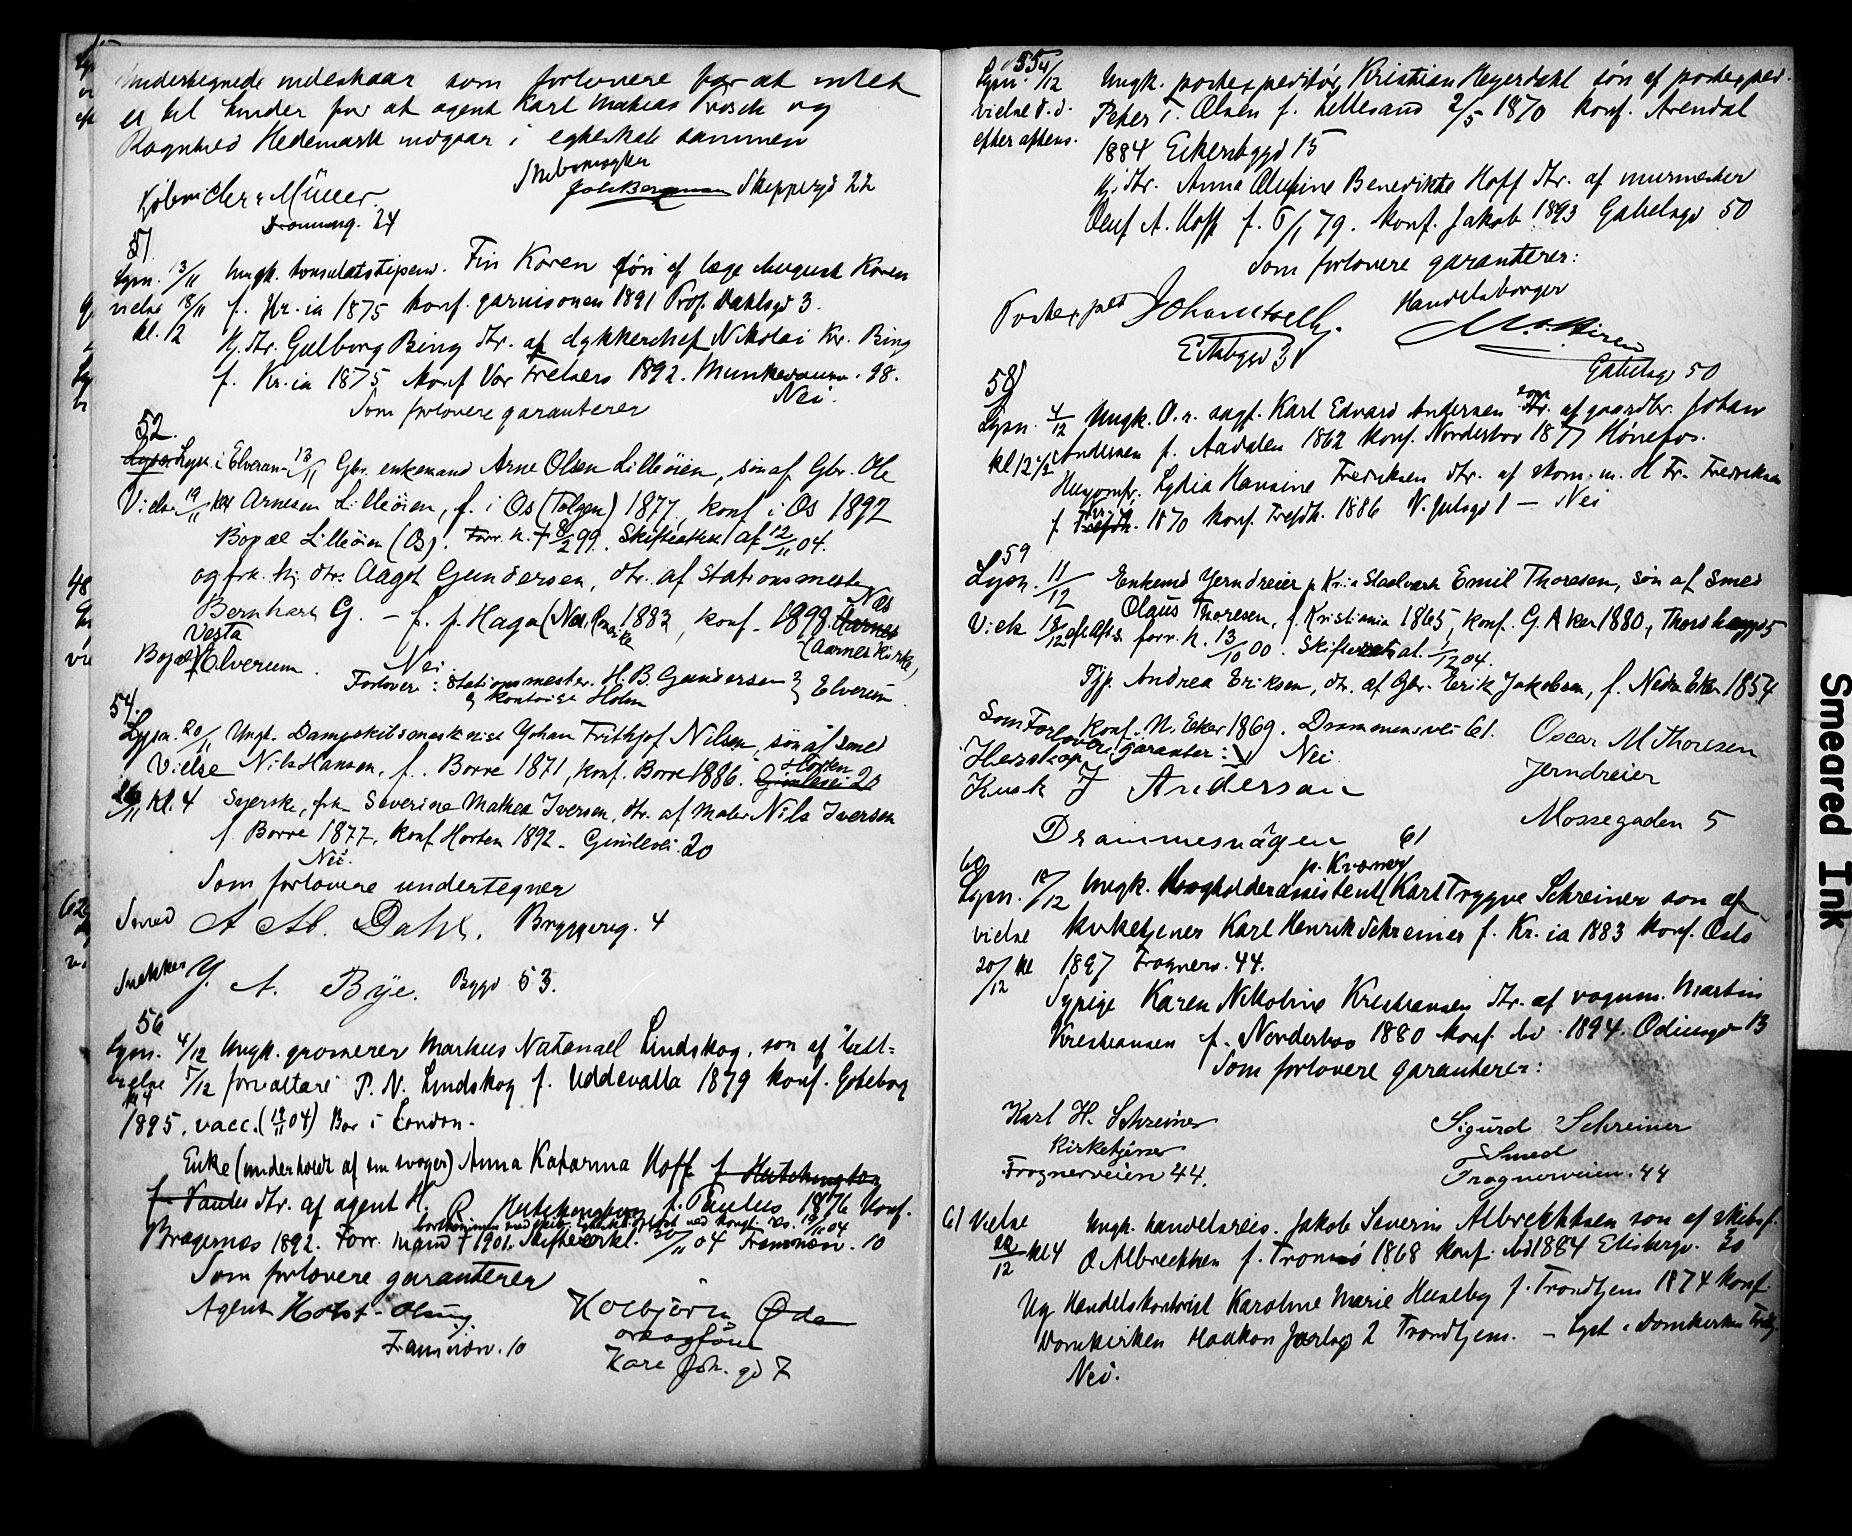 Undertegnede indestaar som forlovere for at intet
er til hinder for at agent Karl Mathias Frosch og
Ragnhild Hedemark indgaar i egteskab sammen
Müller
Dronning. 24
Skippergd 22
51
Lysn. 13/11 Ungk. konsulatstipend. Fin Koren søn af læge August Koren
vielse 18/11 f. Kr.ia 1875 konf. garnisonen 1891 Prof. Dahlsgd 3.
kl. 12 Hj. dtr. Gulborg Bing dtr. af dykkerchef Nikolai Kr. Bing
f. Kr.ia 1875 konf Vor Frelsers 1892. Munkedamsv. 98.
Nei.
Som forlovere garanterer
52.
Lyst i Elverum 13/11 Gbr. enkemand Arne Olsen Lilleøien, søn af Gbr. Ole
Vielse 19/11 Arnesen Lilleøien, f. i Os (Tolgen) 1877, konf i Os 1892
Bopæl Lilleøien (Os). Forr. h. † 8/2 99. Skifteattest af 12/11 04.
og frk. hj. dtr. Aagot Gundersen, dtr. af Stationsmester
Bernhart G. – f. p. Haga (Nes, Romerike 1883, konf. 1898 Nes
(Aarnes Kirke)
Bopæl Vesta Elverum. Nei.
Forlovere: Stationsmester H. B. Gundersen } Elverum
og kontorist Holm
54.
Lysn. 20/11 Ungk. Dampskibsmaskinist Johan Frithjof Nilsen, søn af smed
Vielse Nils Hansen, f. Borre 1871, konf. Borre 1886. Horten Gimlevei 20
26/11 kl. 4 Syerske, frk. Severine Mathea Iversen, dtr. af Maler Nils Iversen
f. Borre 1877, konf Horten 1892 – Gimlevei 20
Nei.
Som forlovere undertegner
Smed A. Dahl. Bryggerig. 4
Snekker J. A. Bye. Bygd 53.
56
Lysn. 4/12 Ungk. grosserer Markus Natanael Lindskog, søn af
vielse 5/12 forvaltare P. N. Lindskog f. Uddevalla 1879 konf. Göteborg
kl 4
1895. vacc. Bor i London.
Enke (underholdt af sin svoger) Anna Katarina Hoff f. Hutchington
f. Paulus dtr. af agent H. R. f. Paulus 1876 konf.
Bragernæs 1892. Forr. mand † 1901. Skifteerkl. 30/11 04 Framnæsv. 10
Som forlovere garanterer
Agent Holst-Olsing
Framnæsv. 10
Kolbjørn Øde
Karl Joh. gd 7
55
Lysn. 4/12 Ungk. postexpeditør Kristian Heyerdahl søn af postexped.
vielse s. d. Peter T. Olsen f. Lillesand 2/5 1870 konf. Arendal
efter aftens. 1884 Eckersbgd 15
Hj. dtr. Anna Benedikte Hoff dtr. af murmester
Oluf A. Hoff f. 6/1 79. konf. Jakob 1893 Gabelsgd 50
Som forlovere garanterer:
Postexped Johan
Handelsborger
Gabelsgd 50
58
Lysn. 4/12 Ungk. O.r. sagf. Karl Edvard Andersen søn af gaardbr. Johan
Andersen f. Aadalen 1862 konf. Norderhov 1877 Hønefos.
kl 12 1/2 Husjomfr. Lydia Hansine Fredriksen dtr. af skom. m. H Fr. Fredriksen
f. 1870 konf. Trefdh. 1886 N. Julsgd 1 – Nei
59
Lysn. 11/12 Enkemd Jerndreier p. Kr.ia Staalverk Emil Thoresen, søn af Smed
Olaus Thoresen, f. Kristiania 1865, konf. G. Aker 1880,
Vielse 18/12 eft Afts forr. h. 13/10 00. Skifteattest 1/12 04.
Tjp. Andrea Eriksen, dtr. af Gbr. Erik Jakobsen, f. Nedre Eker 1854
konf. N. Eker 1869. Drammensvei 61.
Som Forlovere garanter: Nei
Herskap
Kusk J Anderson
Drammesvägen 61
Oscar M Thoresen
Jerndreier
Mossegaden 5
60
Lysn. 10/12 Ungk. Bogholderassistent (p. Kværner) Karl Trygve Schreiner søn af
vielse kirketjener Karl Henrik Schreiner f. Kr.ia 1883 konf. Oslo
20/12 kl 1897 Frognerv. 44.
Sypige Karen Nikoline Kristiansen dtr. af vognm. Martin
Kristiansen f. Norderhov 1880 konf. ibd. 1894. Odinsgd 13
Som forlovere garanterer:
Karl H. Schreiner
Kirketjener
Frognerveien 44.
Sigurd Schreiner
Smed
Frognerveien. 44
61 Vielse Ungk. handelsreis. Jakob Severin Albrechtsen søn af skibsf.
22/12 kl 4 O Albrechtsen f. Tromsø 1868 konf. ibd 1884 Elisbergv. 20
Ug Handelskontorist Karoline Marie Huseby f. Trondhjem 1874 konf.
Domkirken Haakon Jarlsgd 2 Trondhjem. – Lyst i Domkirken Trdhj.
Nei.
Smeared Ink